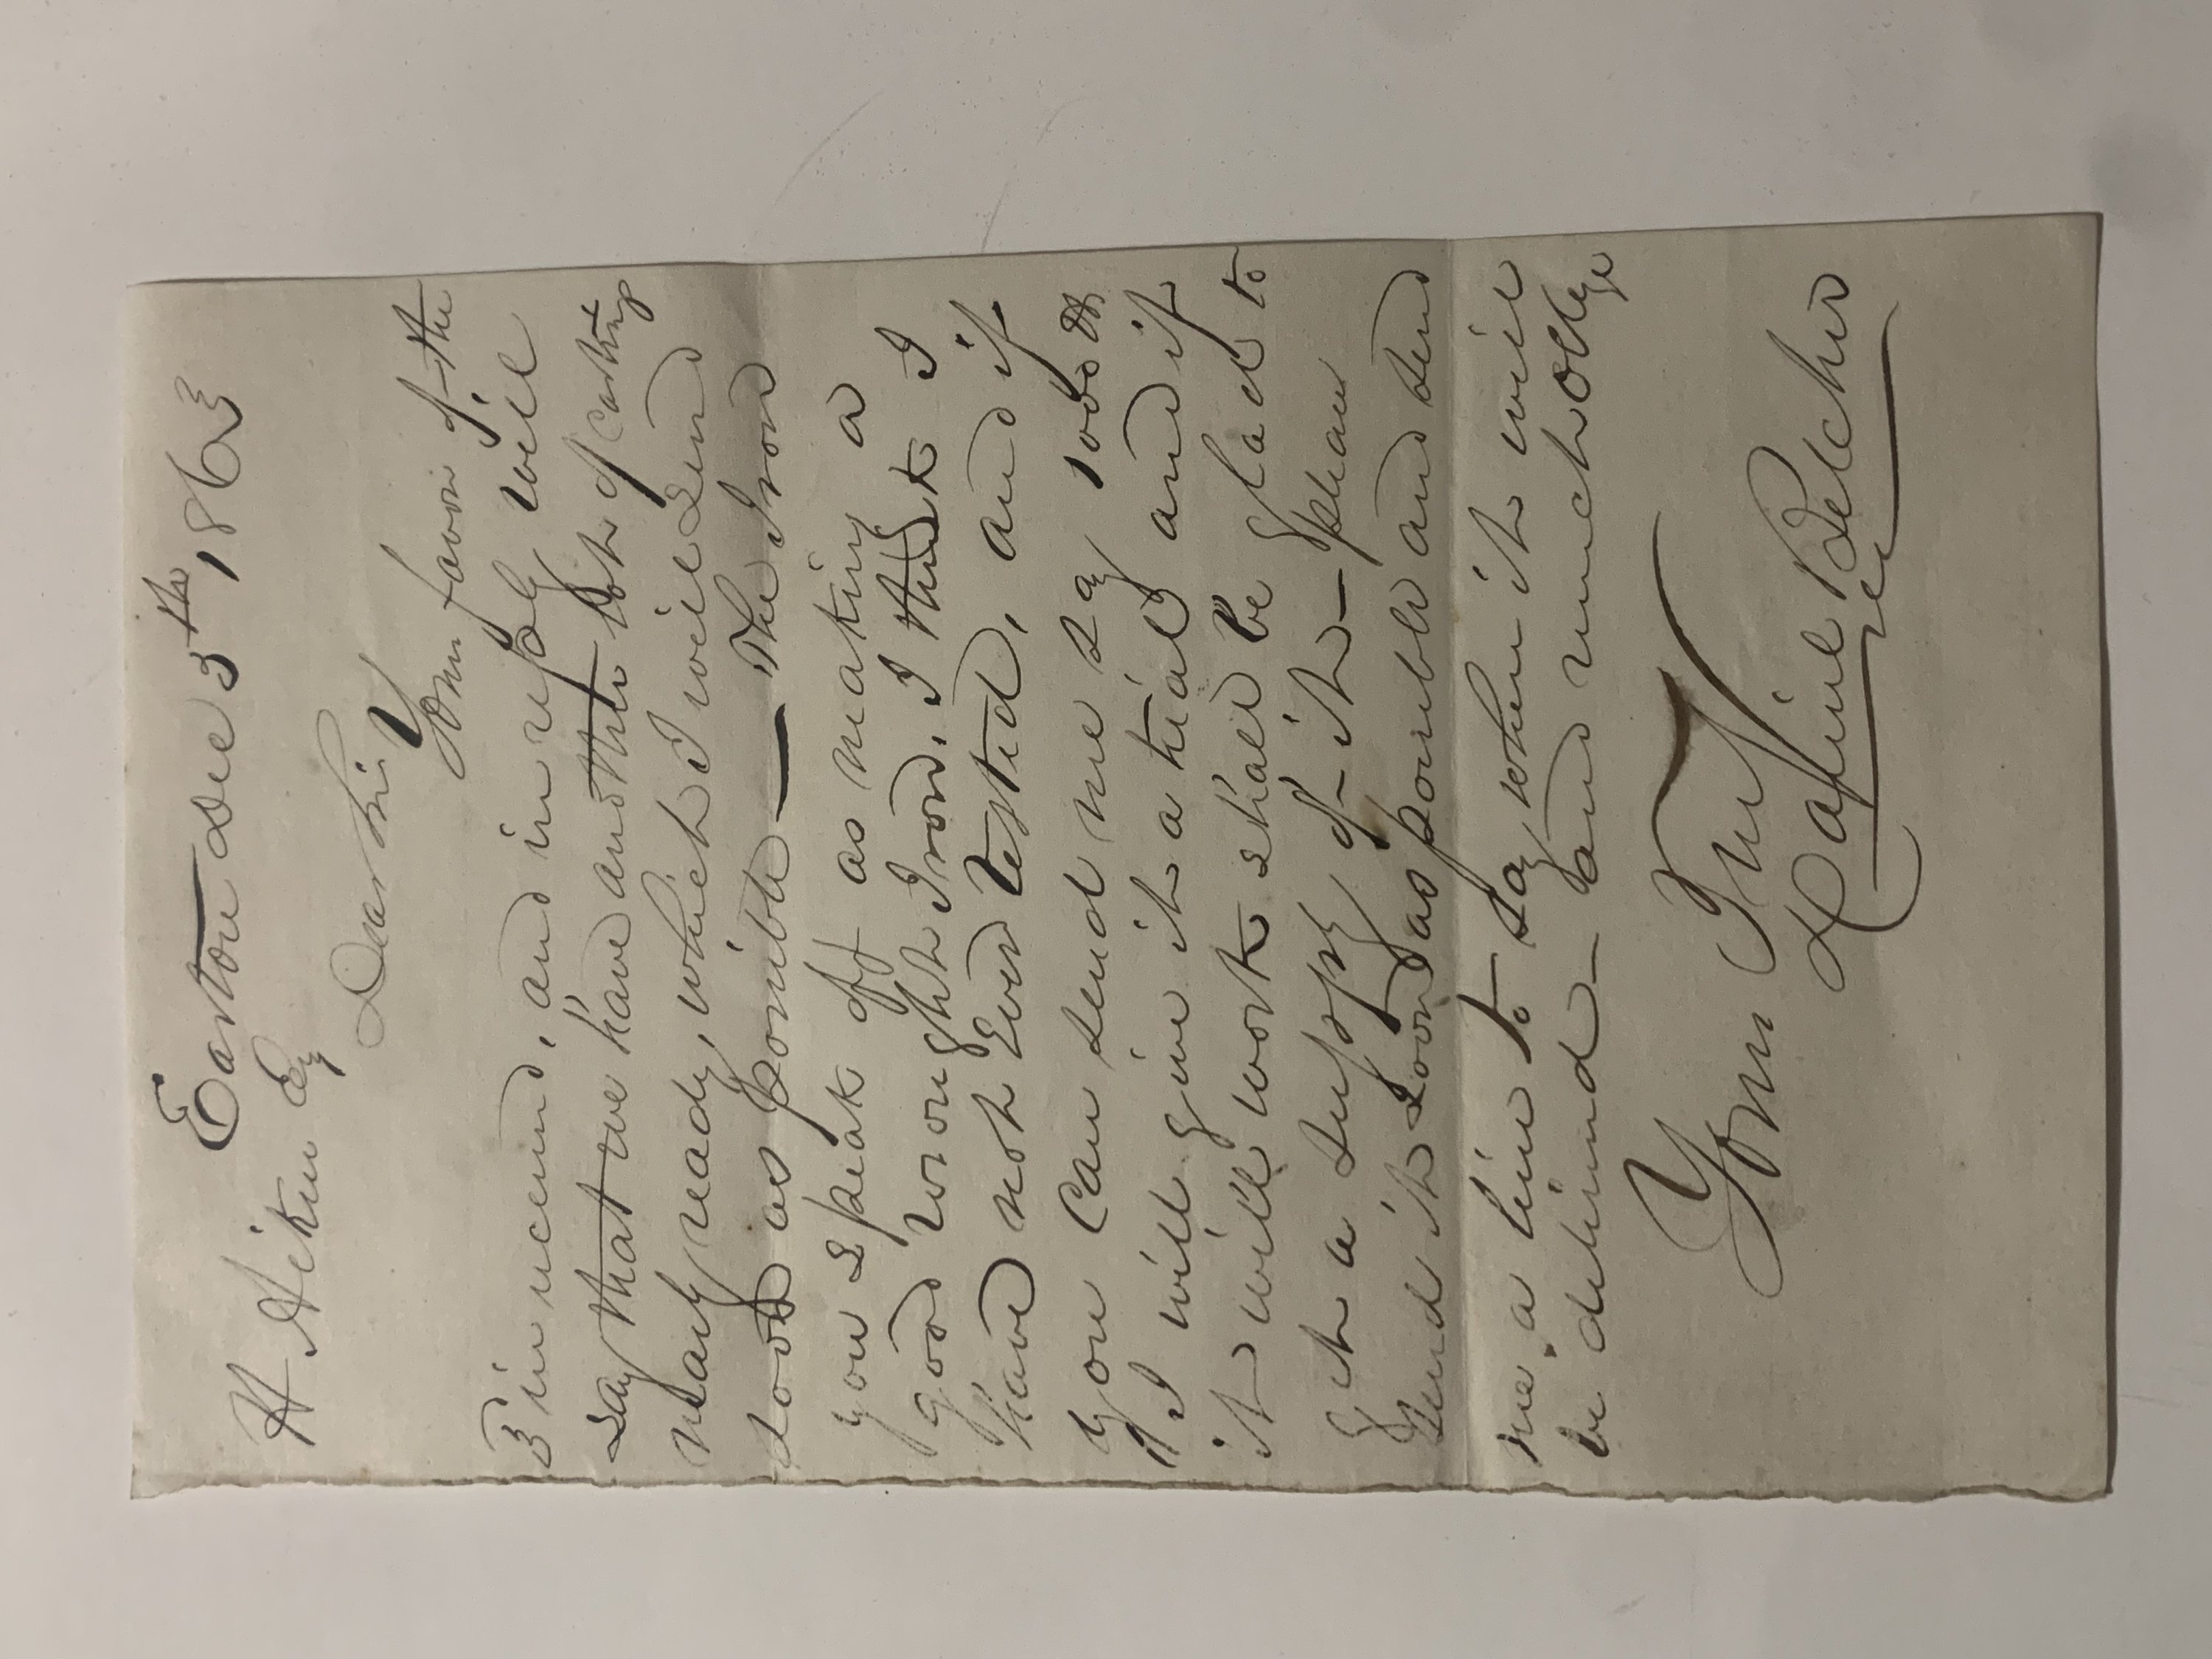 Easton Dec 5th, 1863
H. Aiken Esq
Dear Sir
Your favor of the
3 in recevd, and in reply will
say that we have another lot of Castings
nearly ready, which I will Send
soon as possible — The Iron
you Speak off as making a
good wrought Iron, I think I
have not Ever tested, and if
you can send me say 1000 lbs
I will give it a trial and if
it will work shall be glad to
get a supply of it — please
Send it soon as possible and send
me a line to say when it will
be delivered — and much oblige
Yours Truly
Lafniel Belcher